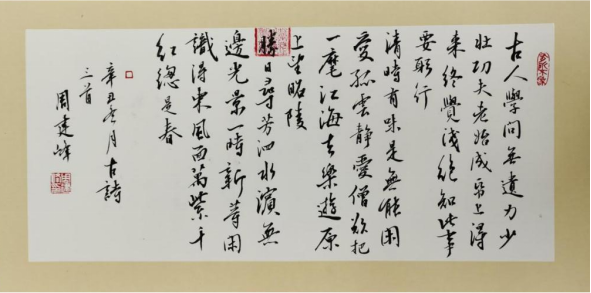 古人學問無遺力少
壯功夫老始成帋上得
来終覺淺絶知此事
要躬行
清時有味是無能閑
愛孤雲静愛僧欲把
一麾江海去樂遊原
上望昭陵
勝日尋芳泗水濱無
邊光景一時新等閑
識得東風面萬紫千
红總是春
辛丑冬月古詩
三首
周建峰